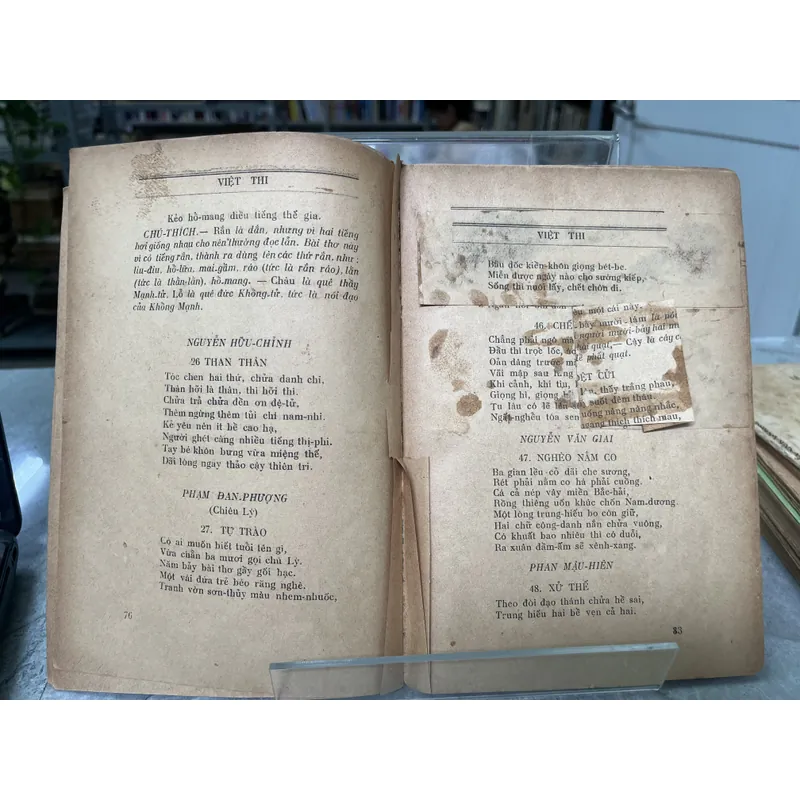 VIỆT THI
Kẻo hổ-mang điều tiếng thế gia.
CHÚ-THÍCH.— Rắn là dắn, nhưng vì hai tiếng
hơi giống nhau cho nên thường đọc lẫn. Bài thơ này
vì có tiếng rắn, thành ra dùng tên các thứ rắn, như :
liu-điu, hồ-lửa, mai-gầm, ráo (tức là rắn ráo), lằn
(tức là thằn-lằn), hổ-mang. — Châu là quê thầy
Mạnh-tử, Lỗ là quê đức Khổng-tử, tức là nói đạo
của Khổng Mạnh.
NGUYỄN HỮU-CHỈNH
26 THAN THÂN
Tóc chen hai thứ, chửa danh chi,
Thân hỡi là thân, thì hỡi thì.
Chửa trả chửa đền ơn đệ-tử,
Thêm ngừng thêm tủi chí nam-nhi.
Kẻ yêu nên ít bề cao hạ,
Người ghét càng nhiều tiếng thị-phi.
Tay bé khôn bưng vừa miệng thế,
Dãi lòng ngay thảo cậy thiên tri.
PHẠM ĐAN-PHƯỢNG
(Chiêu Lỳ)
27. TỰ TRÀO
Có ai muốn biết tuổi tên gì,
Vừa chẵn ba mươi gọi chú Lỳ.
Năm bảy bài thơ gầy gối hạc.
Một vài đứa trẻ béo răng nghê.
Tranh vờn sơn-thủy màu nhem-nhuốc,
76
VIỆT THI
Bầu dốc kiền-khôn giọng hét-he.
Miễn được ngày nào cho sướng kiếp,
Sống thì nuôi lấy, chết chôn đi.
46. CHẾ
bảy mươi-tám là nói
Chẳng phải ngô mà
người mươi-bảy hai
Đầu thì trọc lốc,
— Cậy là cây
Oản dâng trước
phất quạt.
Vãi mập sau lưng
DỆT CỬI
Khi cảnh, khi tịu,
thấy trắng phau,
Giọng hì, giọng
suốt đêm thâu.
Tu lâu có lẽ lên
năng nhắc,
Ngất-nghểu tòa sen
thích thích mau,
NGUYỄN VĂN GIAI
47. NGHÈO NẰM CO
Ba gian lều cỏ dãi che sương,
Rét phải nằm co há phải cuồng.
Cá cả nép vây miền Bắc-hải,
Rồng thiêng uốn khúc chốn Nam-dương.
Một lòng trung-hiếu bo còn giữ,
Hai chữ công-danh nắn chửa vuông,
Có khuất bao nhiêu thì có duỗi,
Ra xuân đầm-ấm sẽ xênh-xang.
PHAN MẬU-HIÊN
48. XỬ THẾ
Theo đòi đạo thánh chửa hề sai,
Trung hiếu hai bề vẹn cả hai.
83